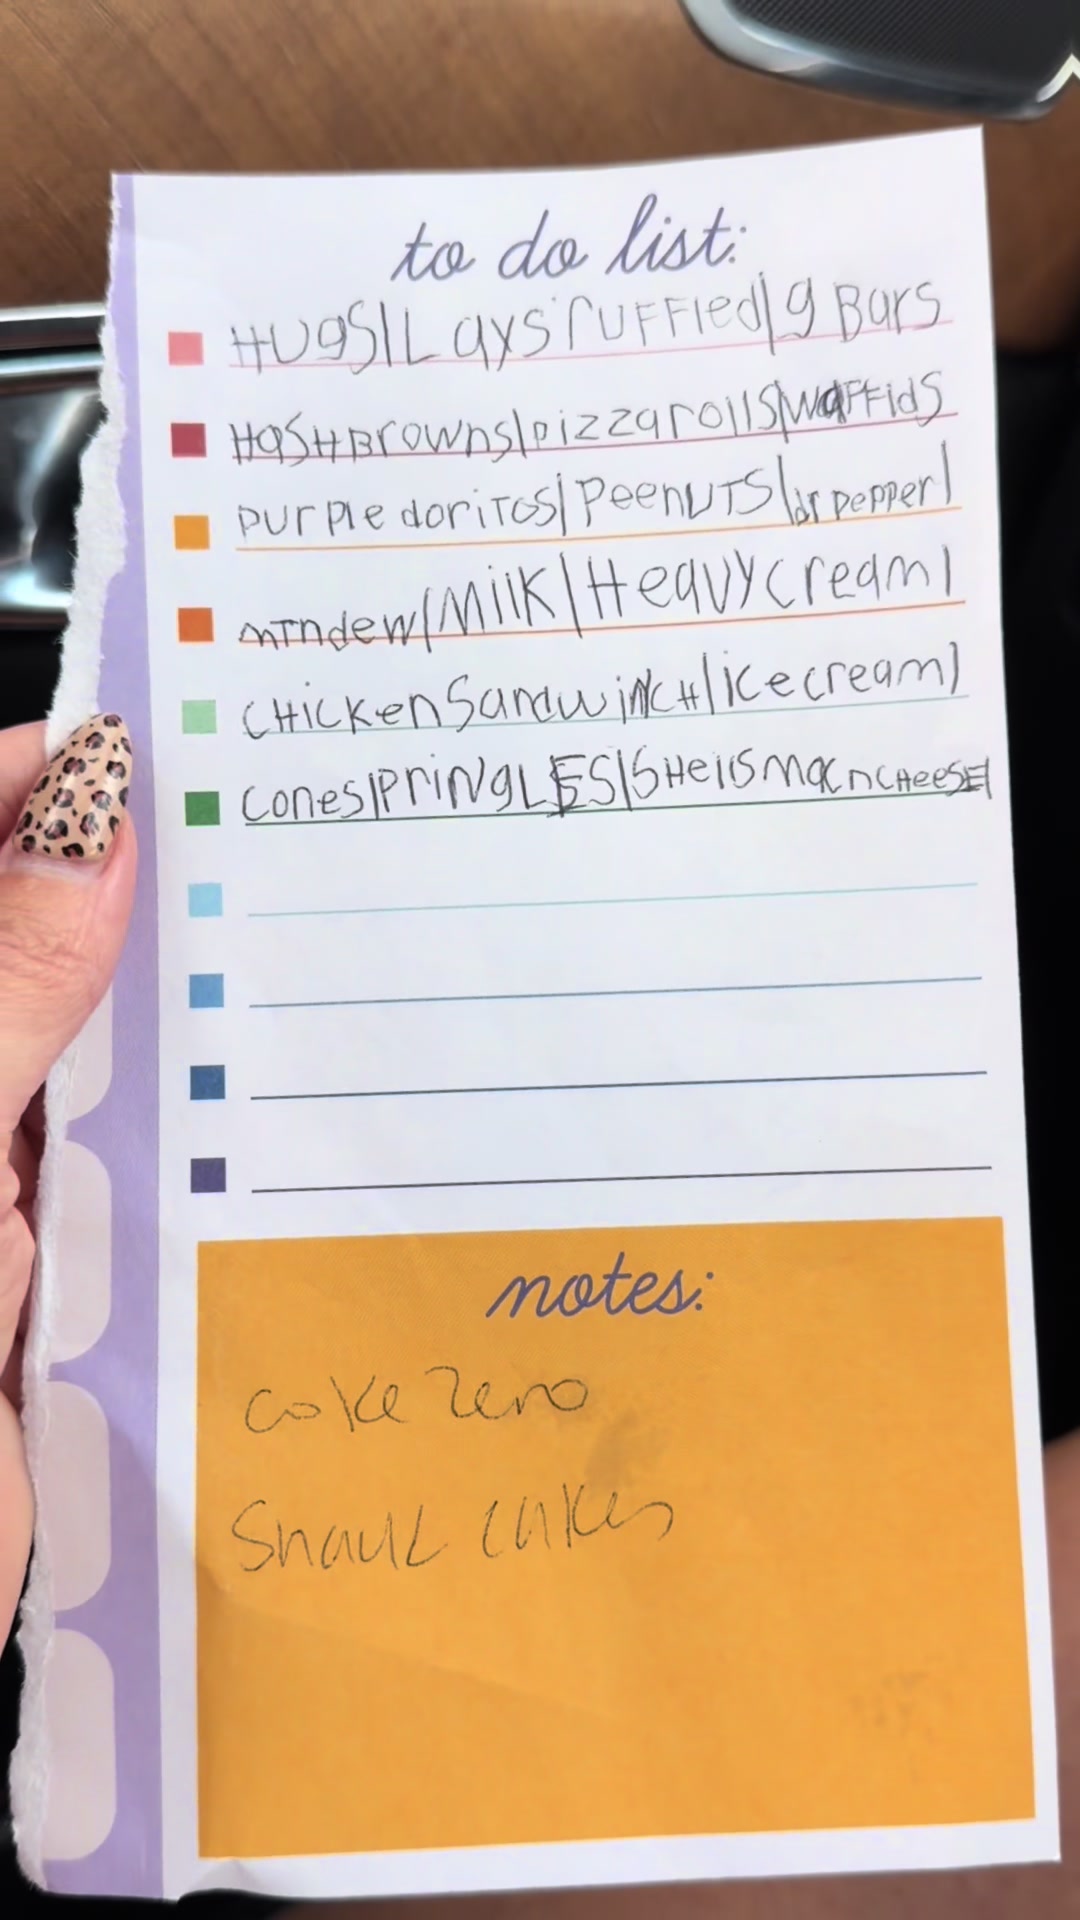 to do list:
HUgS|Lays ruFFled|g Bars
HaSHBrowns|pizzarolls|waFFldS
purple doriTos|PeenuTS|dr pepper|
mTndew|Milk|Heavy cream|
CHickenSandwincH|ice cream|
Cones|PringLES|SHellsmacncHeeSE|
notes:
Coke Zero
Snack cakes